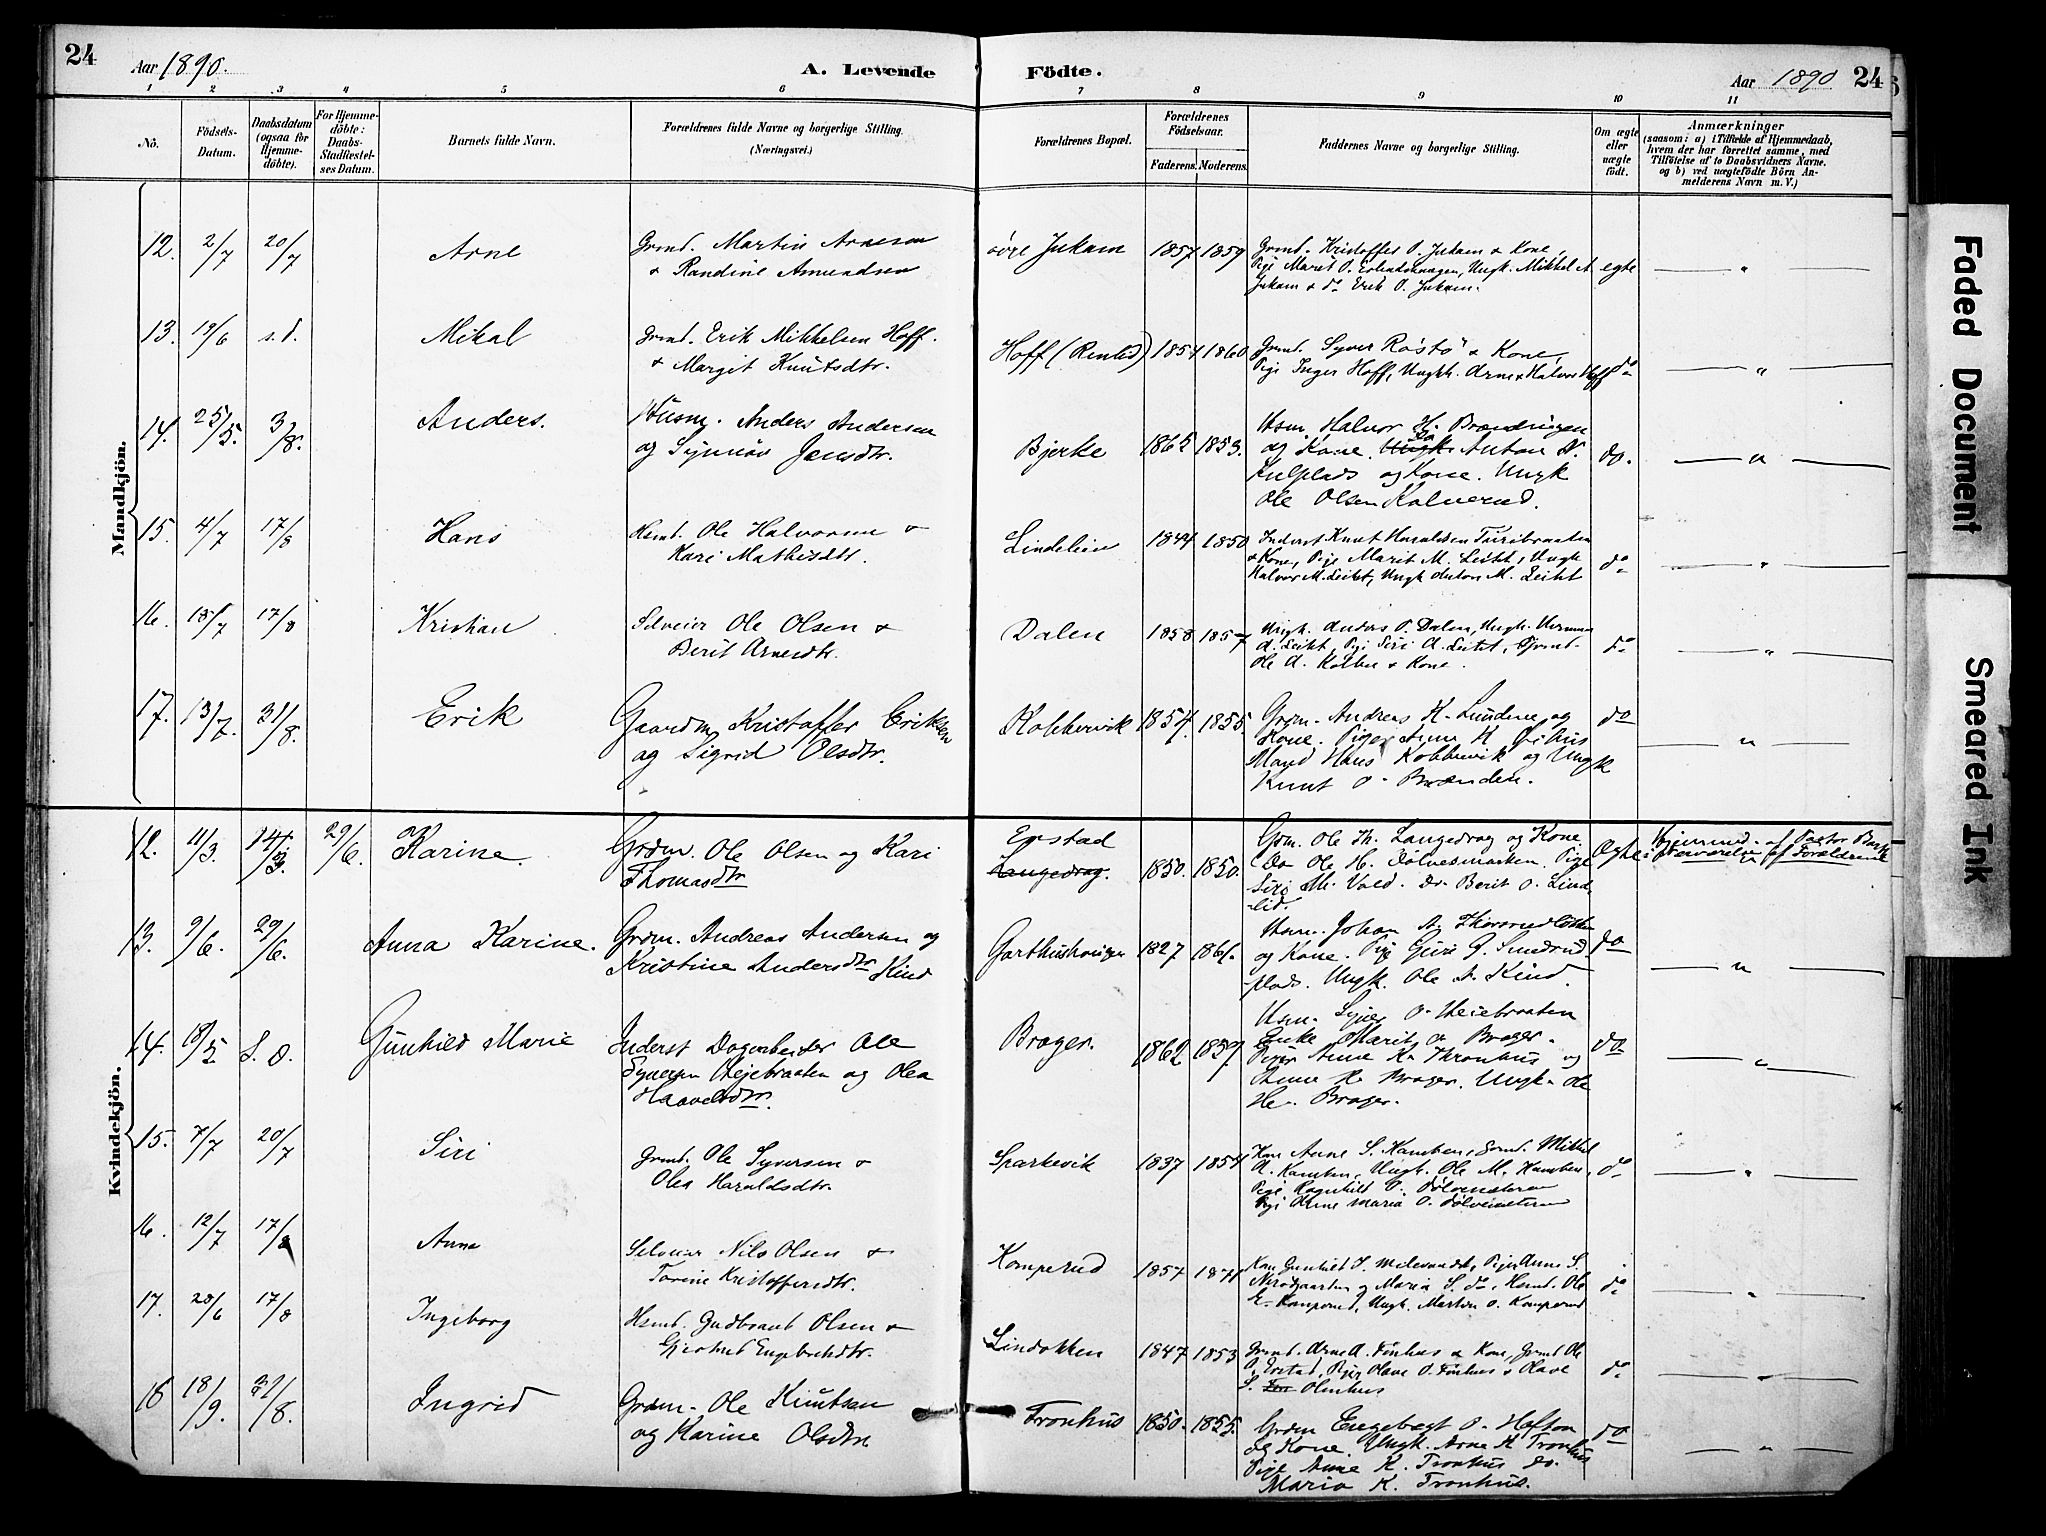 24
Aar 1890.
A. Levende
Födte.
Aar 1890
24
1 2 3 4 5 6 7 8 9 10 11
No.
Födsels-
Datum.
Daabsdatum
(ogsaa for
Hjemme-
döbte).
For Hjemme-
döbte:
Daabs-
Stadfæstel-
ses Datum.
Barnets fulde Navn.
Forældrenes fulde Navne og borgerlige Stilling.
(Næringsvei.)
Forældrenes Bopæl.
Forældrenes
Födselsaar.
Faderens. Moderens.
Faddernes Navne og borgerlige Stilling.
Om ægte
eller
uægte
født.
Anmærkninger
(saasom: a) i Tilfælde af Hjemmedaab,
hvem der har forrettet samme, med
Tilföielse af to Daabsvidners Navne.
og b) ved uægtefödte Börn An-
melderens Navn m. V.)
Mandkjön.
12. 2/7 20/7 Arne
Grmd. Martin Arnesen
& Randine Amundsen
øvre Jukam 1857 1859
Grmd. Kristoffer O. Jukam & Kone,
Pige Marit O. Ungk. Mikkel A.
Jukam & do Erik O. Jukam.
egte
13. 19/6 s.d. Mikal
Grmd. Erik Mikkelsen Hoff
& Margit Knutsdtr.
Hoff 1854 1860
Grmd. Syver Røstø & Kone,
Pige Inger Hoff, Ungk. Arne & Halvor Hoff
do
14. 25/5. 3/8. Anders.
Husm. Anders Andersen
og Synnøv Jensdtr.
Bjerke 1865 1853.
Hsm Halvor H. Brændingen
og Kone. Anton D.
og Kone. Ungk
Ole Olsen Kolnerud.
do.
15. 4/7 17/8 Hans
Hsmd. Ole Halvorsen &
Kari Mathisdtr.
Lindelien 1844 1850
Inderst Knut Haraldsen Turibraaten
& Kone, Pige Marit M. Leikt, Ungk
Halvor M. Leikt, Ungk Anton M. Leikt
do
16. 18/7 17/8 Kristian
Selveier Ole Olsen &
Berit Arnesdtr.
Dalen 1858 1857
Ungk. Anders O. Dalen, Ungk. Herman
A. Leikt, Pige Siri A. Leikt, Grmd.
Ole A. & Kone.
do
17. 13/7. 31/8. Erik
Gaardm Kristoffer Eriksen
og Sigrid Olsdtr.
Kobbervik 1854. 1855.
Grdm. Andreas K. Lundene og
Kone. Pige Anne K
Mand Hans Kobbervik og Ungk
Knut O. Brænden.
do
Kvindekjön.
12. 11/3. 14/3. 29/6. Karine.
Grdm. Ole Olsen og Kari
Thomasdtr
Enstad
Langedrag. 1850. 1850.
Grm. Ole Th. Langedrag og Kone
Do Ole H. Dølvesmarken. Pige
Siri M. Vold. Do Berit O. Lind
lid.
Ægte
Hjemmed. af Pastor
i Nærværelse af Forældrene
13. 9/6. 29/6. Anna Karine.
Grdm. Andreas Andersen og
Kristine Andersdtr Kind
Garthushaugen 1827 1861.
Hsm. Johan A.
og Kone. Pige Guri G. Sundrud
plads. Ungk. Ole A. Kind.
do
14. 18/5 S. D. Gunhild Marie
Inderst Dagarbeider Ole
Syversen Heiebraaten og Olea
Haavelsdtr.
Brager. 1862 1859.
Hsm. Syver O. Heiebraaten
Enke Marit O. Brager.
Piger Anne K. Thronhus og
Anne H. Brager. Ungk. Ole
H. Brager.
do
15. 7/7 20/7 Siri
Grmd. Ole Syversen &
Olea Haraldsdtr.
Sparkevik 1837 1854
Kone Anne S. Kamben, Grmd. Mikkel
A. Kamben, Ungk. Ole M. Kamben,
Pige Ragnhild O.
Pige Anne Maria O.
do
16. 12/7 17/8 Anna
Selveier Nils Olsen &
Torine Kristoffersdtr.
Komperud 1857 1871
Kone Gunhild S. Piger Anne S.
og Maria S. do, Hsmd. Ole
E. Komperud, Ungk. Martin O. Komperud
do
17. 28/6 17/8 Ingeborg
Hsmd. Gudbrand Olsen &
Gjertrud Engebretsdtr.
Lindokken 1847 1853
Grmd. Arne A. Finhus & Kone, Grmd Ole
O. Enstad, Piger Olave O. Finhus & Olave
S. Olmhus
do
18 18/9. 31/8. Ingrid
Grdm. Ole Knutsen
og Karine Olsdtr
Tronhus 1850. 1855.
Grdm Engebregt O. Hofton
og Kone. Ungk. Arne K Tronhus
Pige Anne K. Tronhus do.
Maria K. Tronhus.
do
Faded Document
Smeared Ink